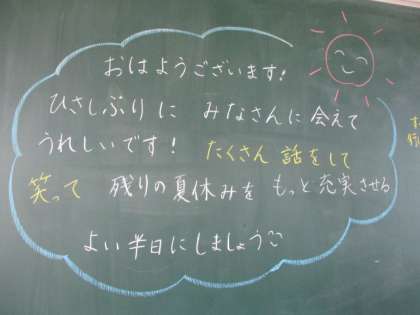 おはようございます!
ひさしぶりに みなさんに会えて
うれしいです! たくさん 話をして
笑って 残りの夏休みを もっと充実させる
よい半日にしましょう